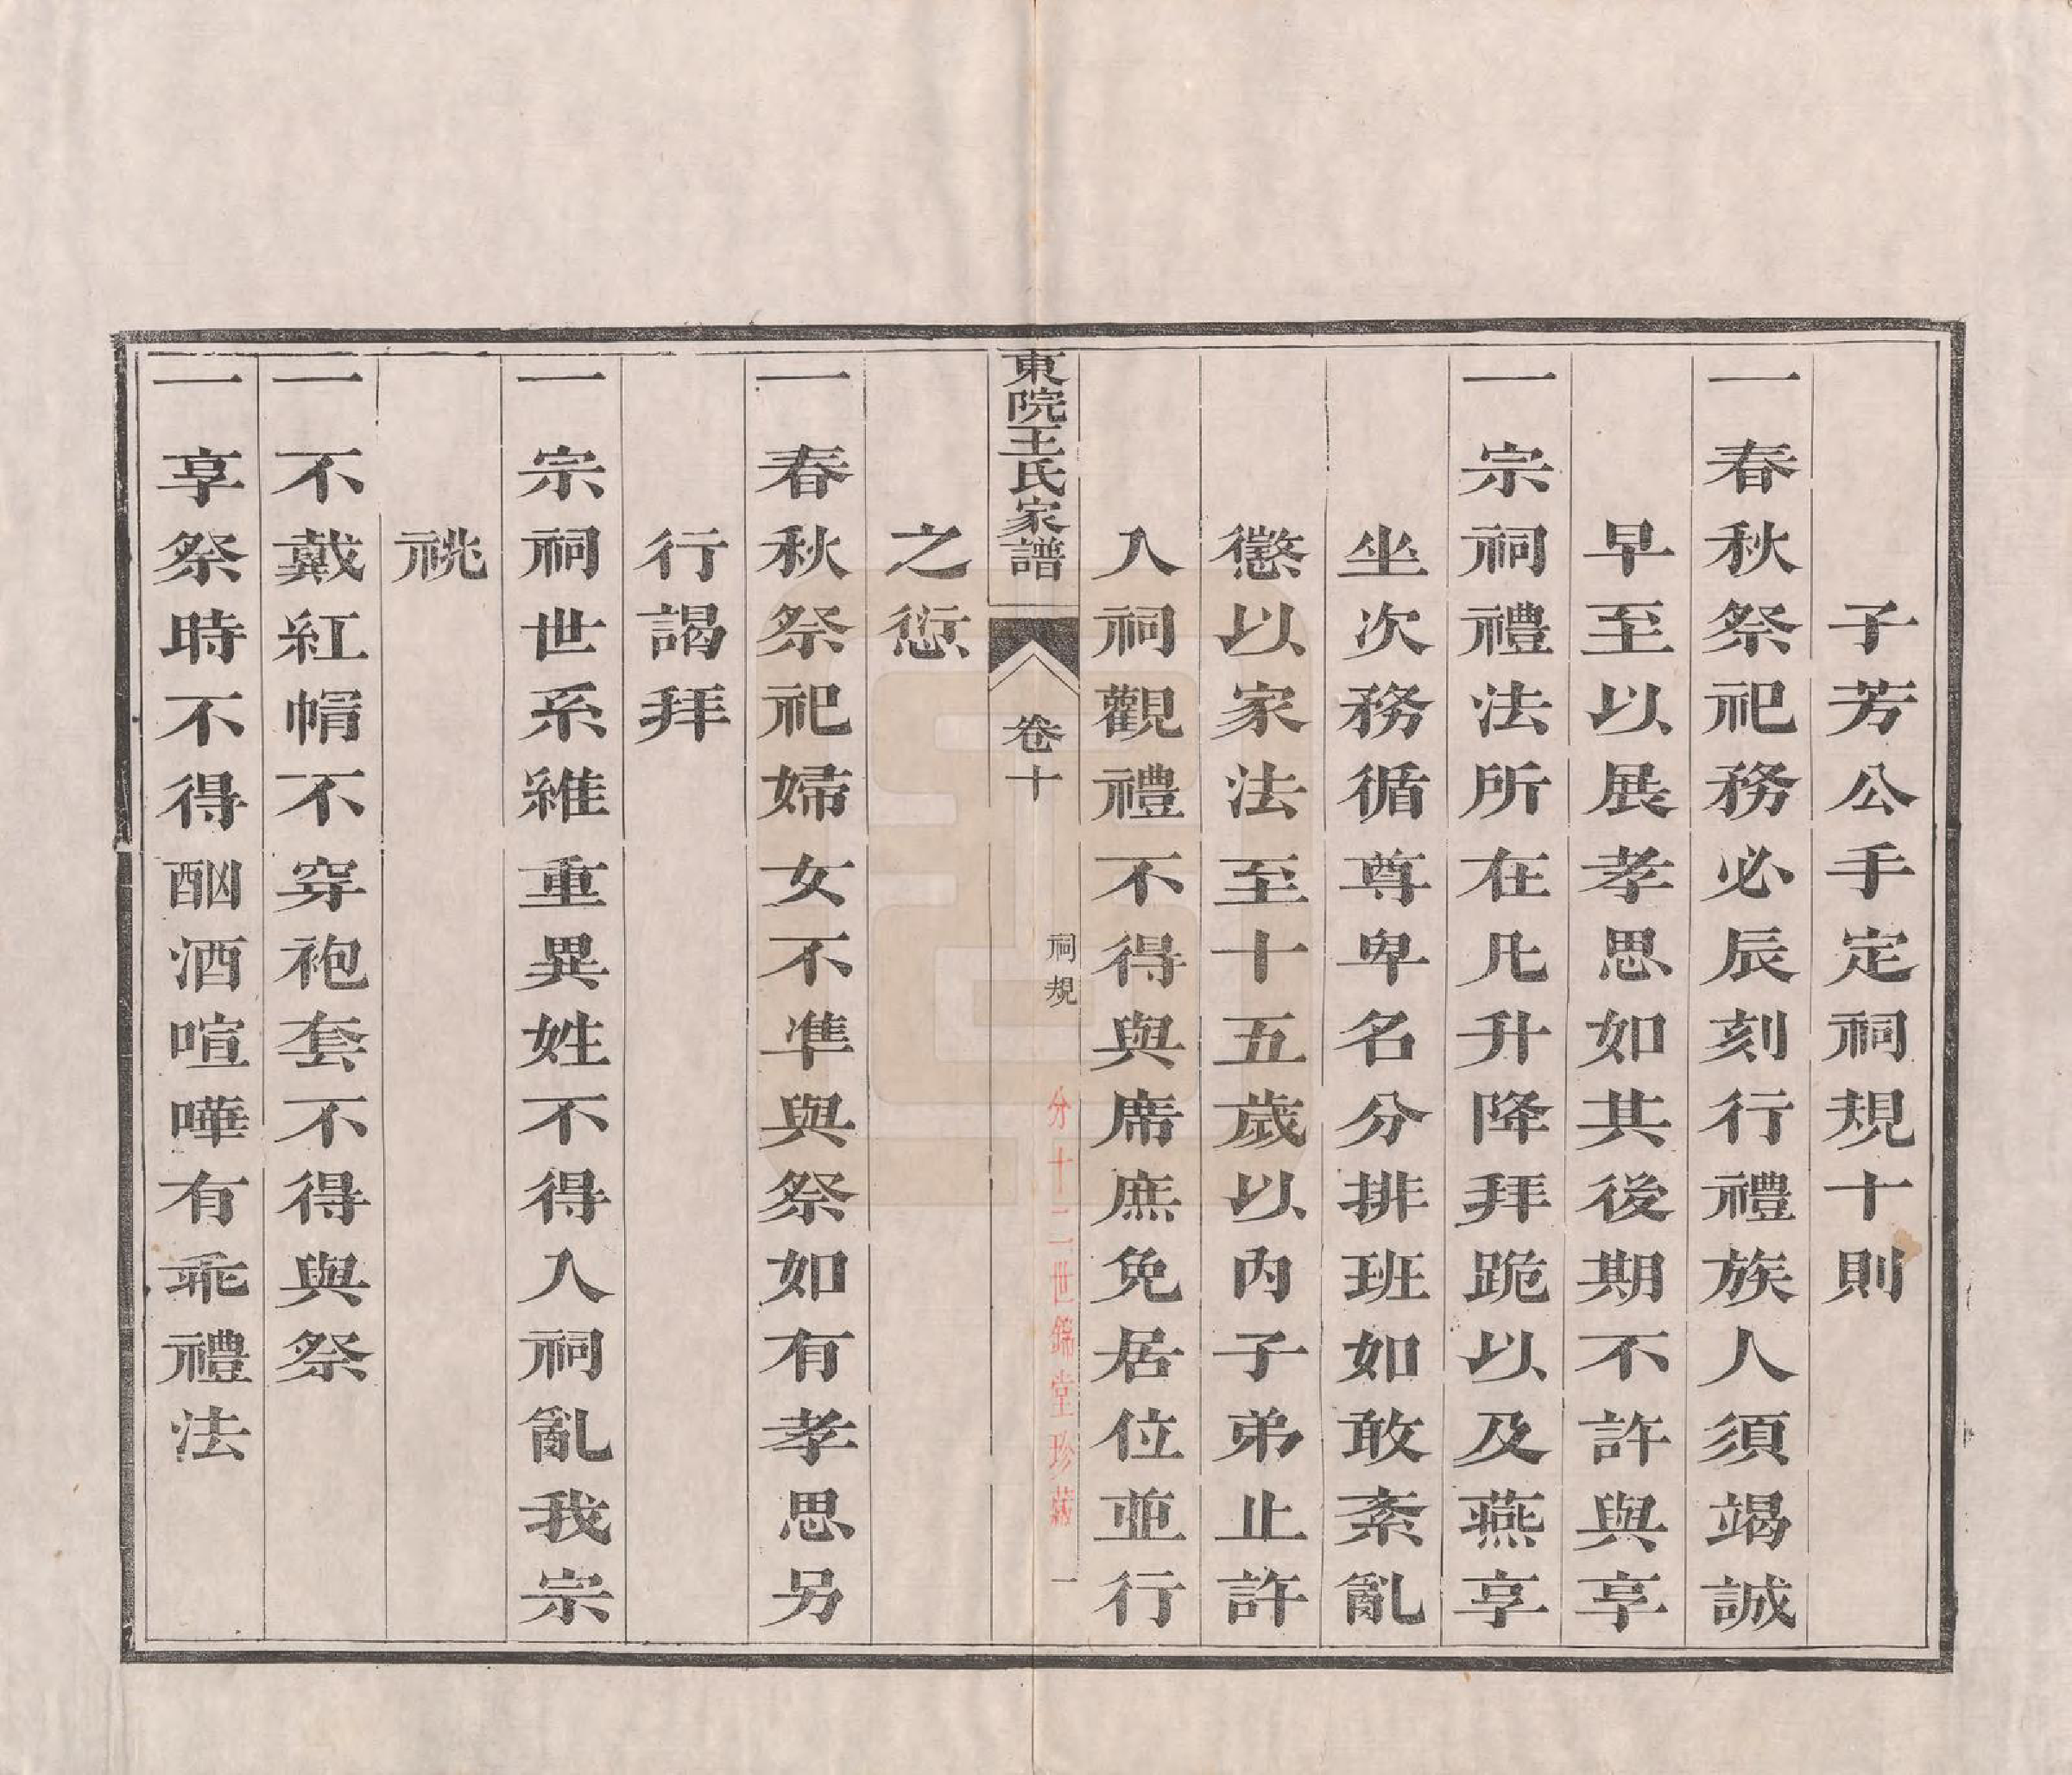 子芳公手定祠規十則
一春秋祭祀務必辰刻行禮族人須竭誠
早至以展孝思如其後期不許與享
一宗祠禮法所在凡升降拜跪以及燕享
坐次務循尊卑名分排班如敢紊亂
懲以家法至十五歲以內子弟止許
入祠觀禮不得與席庶免居位並行
東院王氏家譜
卷十
祠規
分十二世錦堂珍藏
一
之愆
一春秋祭祀婦女不準與祭如有孝思另
行謁拜
一宗祠世系維重異姓不得入祠亂我宗
祧
一不戴紅帽不穿袍套不得與祭
一享祭時不得酗酒喧嘩有乖禮法